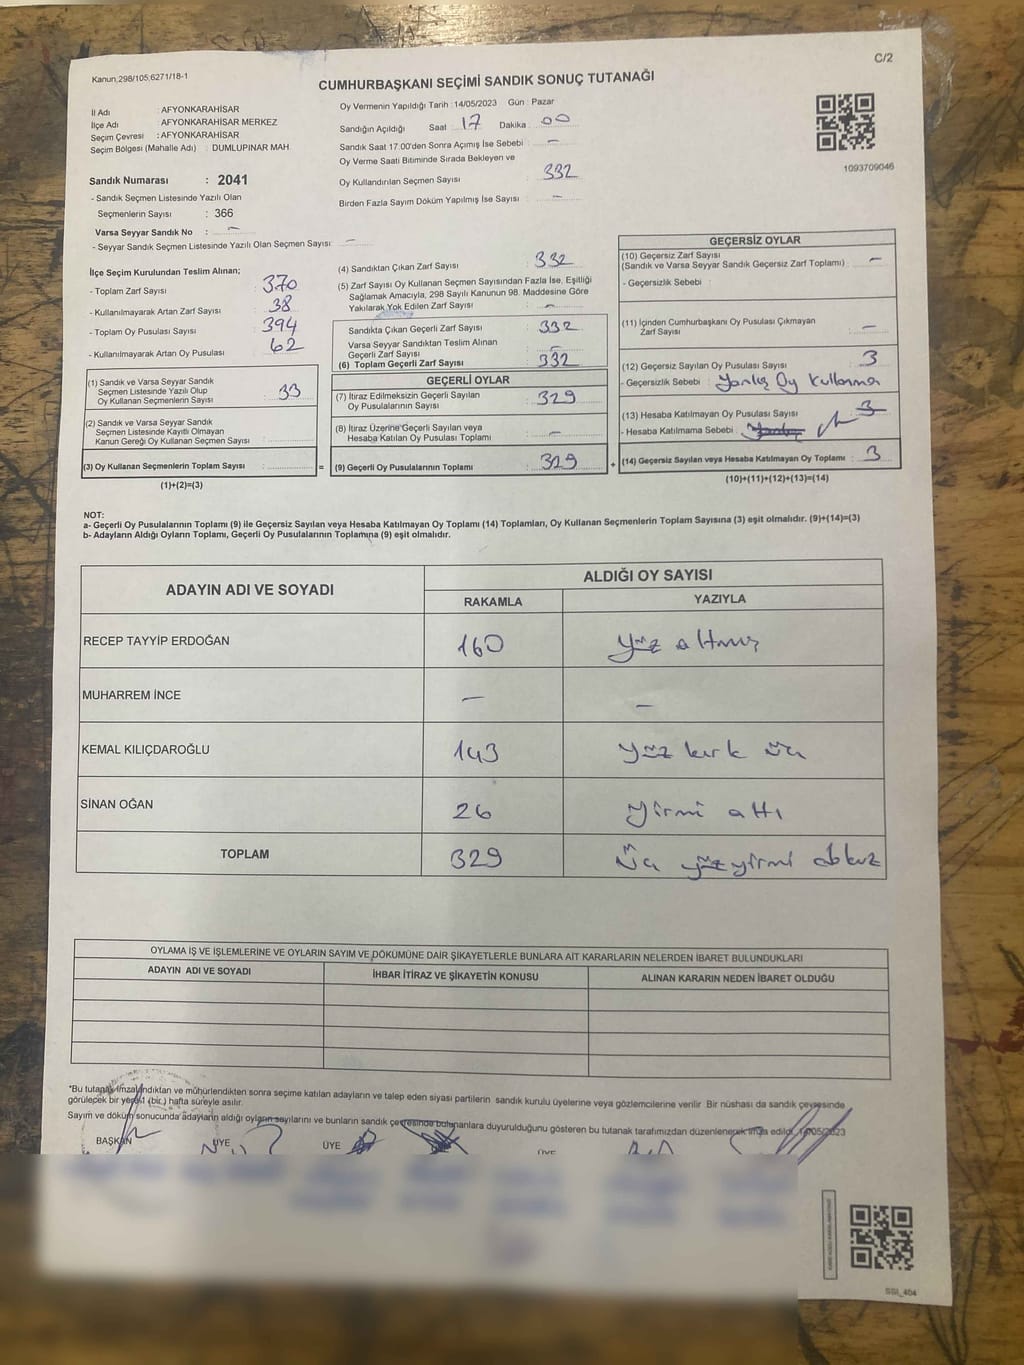 Kanun;298/105;6271/18-1
C/2
CUMHURBAŞKANI SEÇİMİ SANDIK SONUÇ TUTANAĞI
İl Adı : AFYONKARAHİSAR
İlçe Adı : AFYONKARAHİSAR MERKEZ
Seçim Çevresi : AFYONKARAHİSAR
Seçim Bölgesi (Mahalle Adı) : DUMLUPINAR MAH.
Sandık Numarası : 2041
- Sandık Seçmen Listesinde Yazılı Olan
Seçmenlerin Sayısı : 366
Varsa Seyyar Sandık No : -
- Seyyar Sandık Seçmen Listesinde Yazılı Olan Seçmen Sayısı: -
Oy Vermenin Yapıldığı Tarih : 14/05/2023 Gün : Pazar
Sandığın Açıldığı Saat : 17 Dakika : 00
Sandık Saat 17:00'den Sonra Açımış İse Sebebi : -
Oy Verme Saati Bitiminde Sırada Bekleyen ve
Oy Kullandırılan Seçmen Sayısı : 332
Birden Fazla Sayım Döküm Yapılmış İse Sayısı : -
1093709046
İlçe Seçim Kurulundan Teslim Alınan;
- Toplam Zarf Sayısı : 370
- Kullanılmayarak Artan Zarf Sayısı : 38
- Toplam Oy Pusulası Sayısı : 394
- Kullanılmayarak Artan Oy Pusulası : 62
(1) Sandık ve Varsa Seyyar Sandık
Seçmen Listesinde Yazılı Olup
Oy Kullanan Seçmenlerin Sayısı : 33
(2) Sandık ve Varsa Seyyar Sandık
Seçmen Listesinde Kayıtlı Olmayan
Kanun Gereği Oy Kullanan Seçmen Sayısı :
(3) Oy Kullanan Seçmenlerin Toplam Sayısı : =
(1)+(2)=(3)
(4) Sandıktan Çıkan Zarf Sayısı : 332
(5) Zarf Sayısı Oy Kullanan Seçmen Sayısından Fazla İse, Eşitliği
Sağlamak Amacıyla, 298 Sayılı Kanunun 98. Maddesine Göre
Yakılarak Yok Edilen Zarf Sayısı : -
Sandıkta Çıkan Geçerli Zarf Sayısı : 332
Varsa Seyyar Sandıktan Teslim Alınan
Geçerli Zarf Sayısı : -
(6) Toplam Geçerli Zarf Sayısı : 332
GEÇERLİ OYLAR
(7) İtiraz Edilmeksizin Geçerli Sayılan
Oy Pusulalarının Sayısı : 329
(8) İtiraz Üzerine Geçerli Sayılan veya
Hesaba Katılan Oy Pusulası Toplamı : -
(9) Geçerli Oy Pusulalarının Toplamı : 329 +
GEÇERSİZ OYLAR
(10) Geçersiz Zarf Sayısı
(Sandık ve Varsa Seyyar Sandık Geçersiz Zarf Toplamı) : -
- Geçersizlik Sebebi :
(11) İçinden Cumhurbaşkanı Oy Pusulası Çıkmayan
Zarf Sayısı : -
(12) Geçersiz Sayılan Oy Pusulası Sayısı : 3
- Geçersizlik Sebebi : Yanlış Oy Kullanma
(13) Hesaba Katılmayan Oy Pusulası Sayısı : 3
- Hesaba Katılmama Sebebi :
(14) Geçersiz Sayılan veya Hesaba Katılmayan Oy Toplamı : 3
(10)+(11)+(12)+(13)=(14)
NOT:
a- Geçerli Oy Pusulalarının Toplamı (9) ile Geçersiz Sayılan veya Hesaba Katılmayan Oy Toplamı (14) Toplamları, Oy Kullanan Seçmenlerin Toplam Sayısına (3) eşit olmalıdır. (9)+(14)=(3)
b- Adayların Aldığı Oyların Toplamı, Geçerli Oy Pusulalarının Toplamına (9) eşit olmalıdır.
ADAYIN ADI VE SOYADI
ALDIĞI OY SAYISI
RAKAMLA YAZIYLA
RECEP TAYYİP ERDOĞAN 160 yüz altmış
MUHARREM İNCE - -
KEMAL KILIÇDAROĞLU 143 yüz kırk üç
SİNAN OĞAN 26 yirmi altı
TOPLAM 329 üç yüz yirmi dokuz
OYLAMA İŞ VE İŞLEMLERİNE VE OYLARIN SAYIM VE DÖKÜMÜNE DAİR ŞİKAYETLERLE BUNLARA AİT KARARLARIN NELERDEN İBARET BULUNDUKLARI
ADAYIN ADI VE SOYADI İHBAR İTİRAZ VE ŞİKAYETİN KONUSU ALINAN KARARIN NEDEN İBARET OLDUĞU
*Bu tutanak imzalandıktan ve mühürlendikten sonra seçime katılan adayların ve talep eden siyasi partilerin sandık kurulu üyelerine veya gözlemcilerine verilir. Bir nüshası da sandık çevresinde
görülecek bir yere 1 (bir.) hafta süreyle asılır.
Sayım ve döküm sonucunda adayların aldığı oyların sayılarını ve bunların sandık çevresinde bulunanlara duyurulduğunu gösteren bu tutanak tarafımızdan düzenlenerek imza edildi. 14/05/2023
BAŞKAN ÜYE ÜYE ÜYE